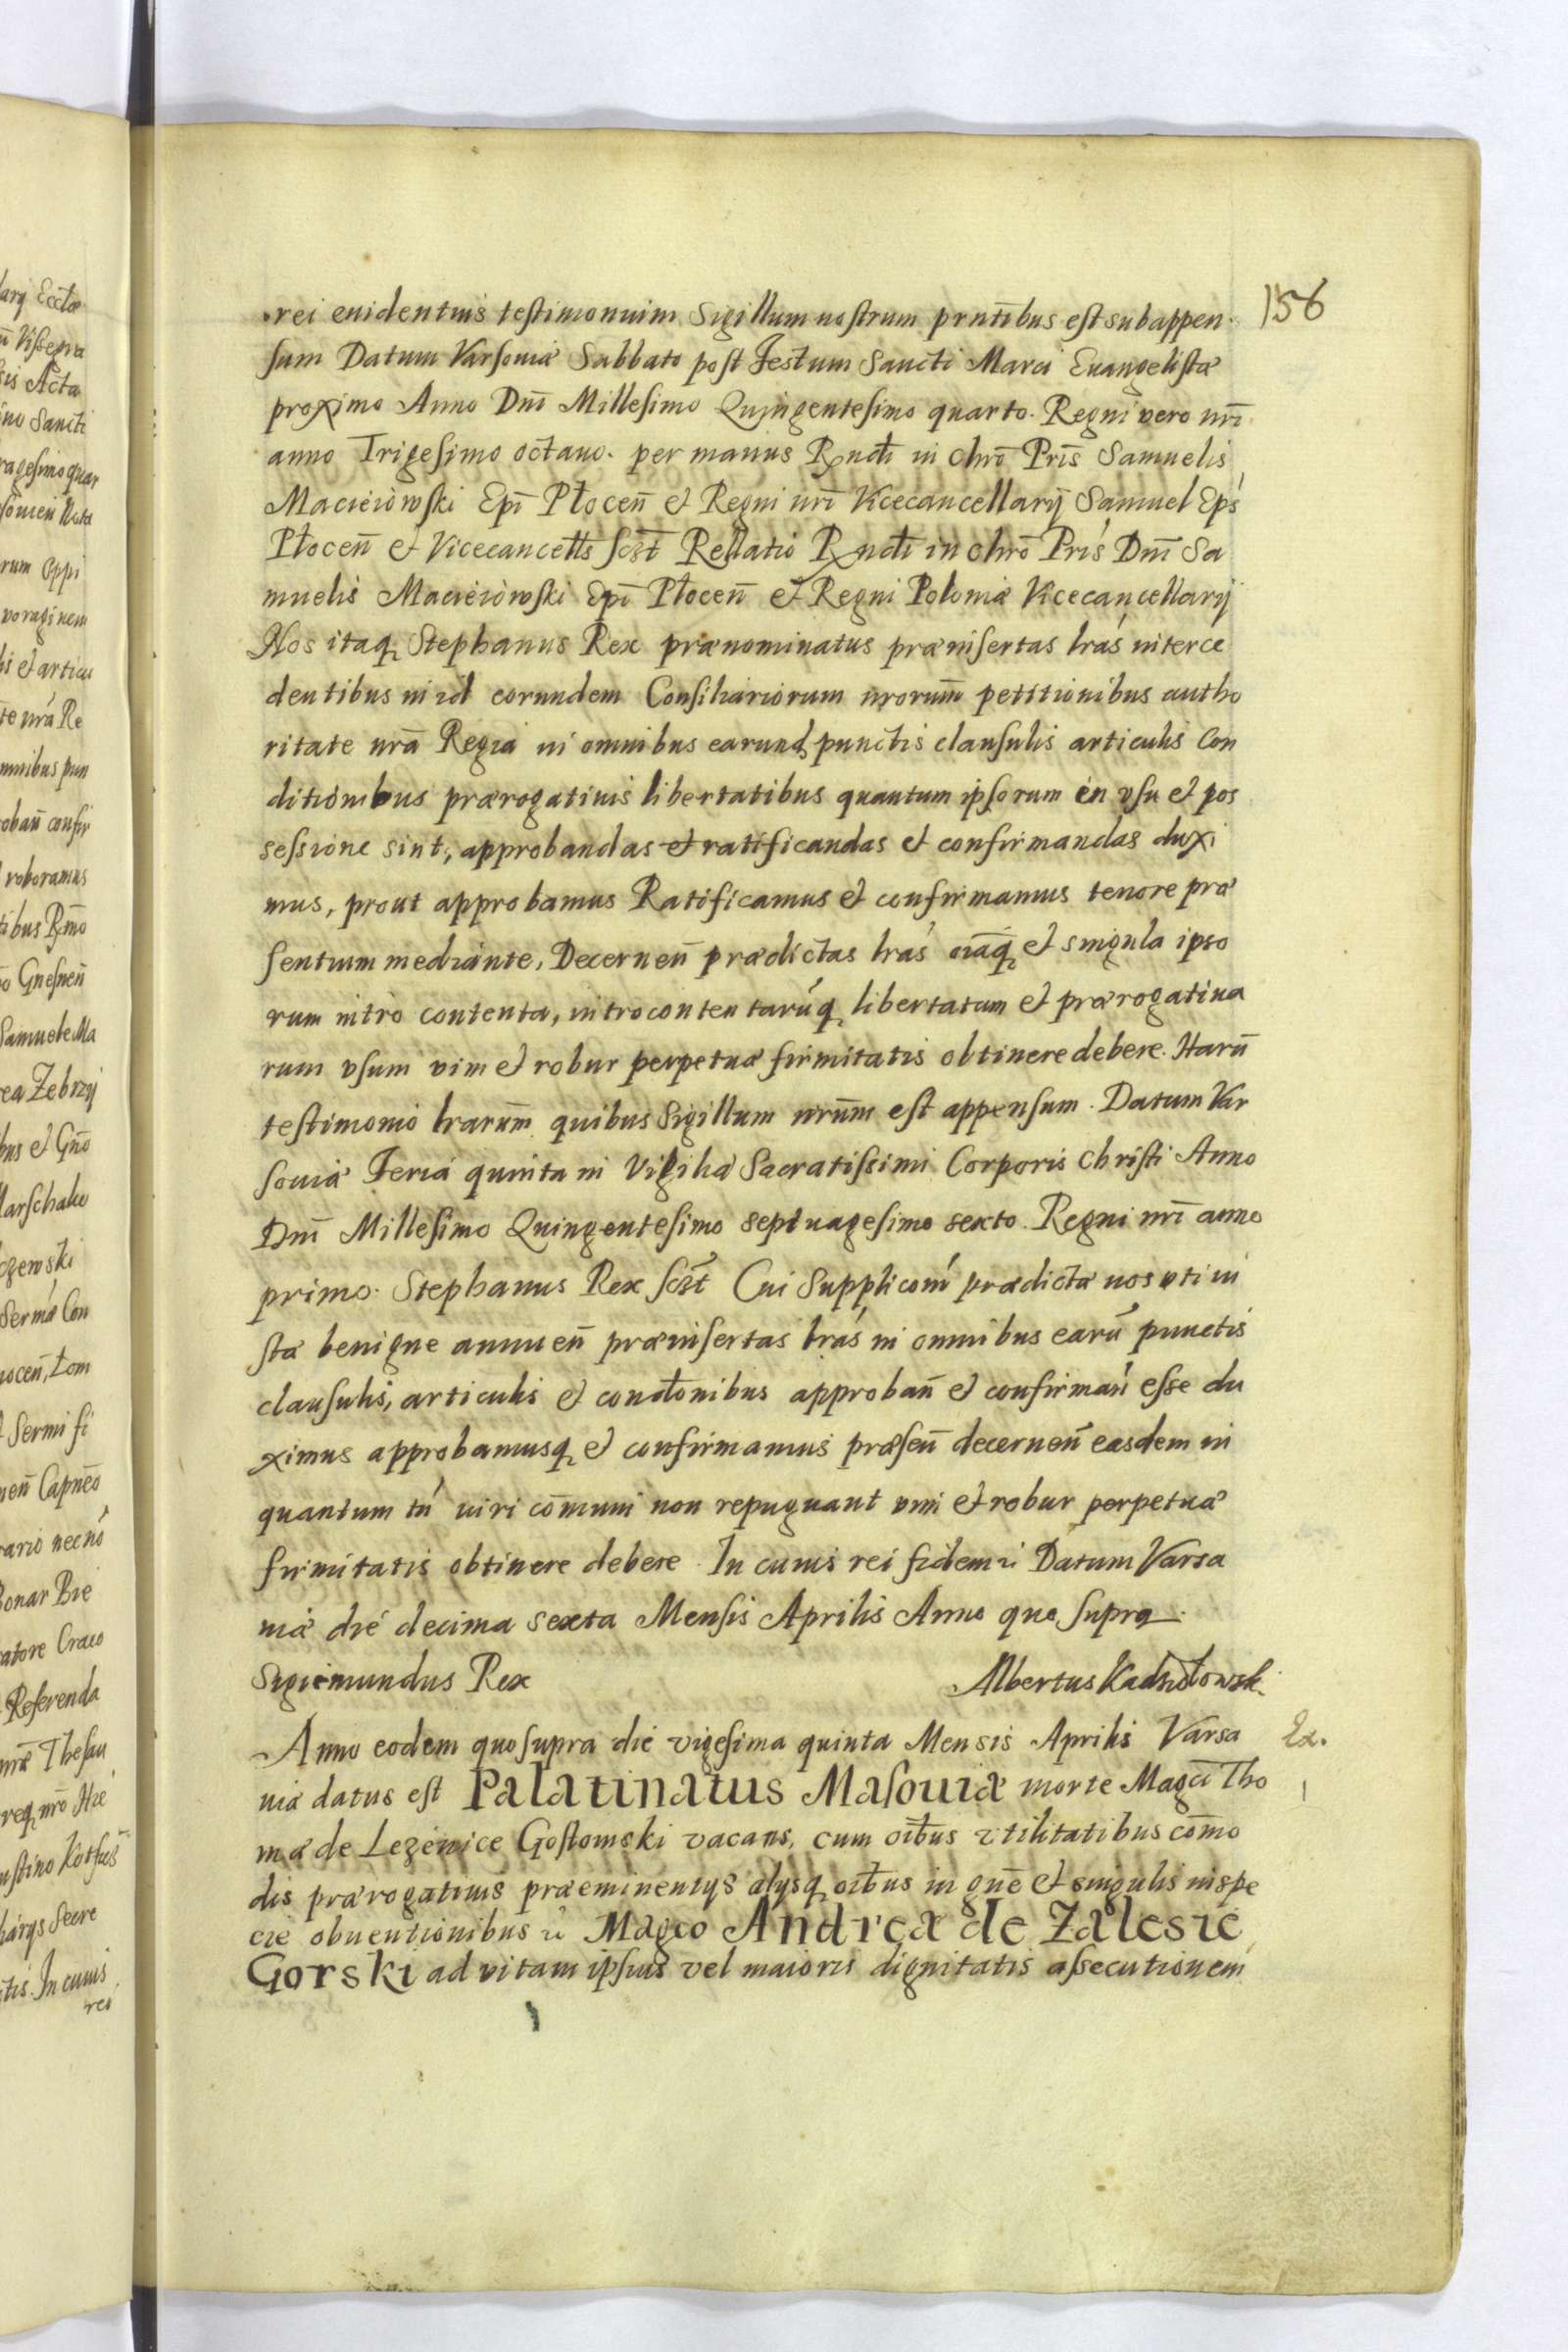 156
rei euidentius testimonium Sigillum nostrum pñtibus est subappen
sum Datum Varsouiæ Sabbato post Festum Sancti Marci Euangelistæ
proximo Anno Dnī Millesimo Quingentesimo quarto. Regni vero nrī
anno Trigesimo octauo. per manus Rndi in chrō Prīs Samuelis
Macieiowski Epī Płocen̄ et Regni nrī Vicecancellarij Samuel Eps
Płocen̄ et Vicecancells sszt Rellatio Rndi in chrō Pris Dnī Sa
muelis Macieiowski Epī Płocen̄ et Regni Poloniæ Vicecancellarij
Nos itaq Stephanus Rex prænominatus præinsertas lras interce
dentibus in id eorundem Consiliariorum nrorum̄ petitionibus autho
ritate nrā Regia in omnibus earund punctis clausulis articulis Con
ditionibus prærogatiuis libertatibus quantum ipsorum in vsu et pos
sessione sint, approbandas et ratificandas et confirmandas duxi
mus, prout approbamus Ratificamus et confirmamus tenore præ
sentium mediante, Decernen̄ prædictas lras oīaq et singula ipso
rum intro contenta, introcontentarúq libertatum et prærogatiua
rum vsum vim et robur perpetuæ firmitatis obtinere debere. Harū
testimonio lrarum̄ quibus Sigillum nrum̄ est appensum. Datum Var
souiæ Feria quinta in Vigilia Sacratissimi Corporis Christi Anno
Dnī Millesimo Quingentesimo septuagesimo sexto. Regni nrī anno
primo. Stephanus Rex sszt Cui Supplicōni prædictæ nos vti iu
stæ benigne annuen̄ præinsertas lras in omnibus earū punctis
clausulis, articulis et condonibus approban̄ et confirman̄ esse du
ximus approbamusq et confirmamus præsen̄ decernen̄ easdem in
quantum tn̄ iuri cōmuni non repugnant vim et robur perpetuæ
firmitatis obtinere debere. In cuius rei fidem Datum Varsa
uiæ die decima sexta Mensis Aprilis Anno quo supra.
Sigismundus Rex Albertus Kadzidłowsk.
Anno eodem quo supra die vigesima quinta Mensis Aprilis Varsa Ex.
uiæ datus est Palatinatus Masouiæ morte Magci Tho
mæ de Lezenice Gostomski vacans, cum oibus vtilitatibus cōmo
dis prærogatiuis præeminentijs alijsq oibus in gn̄e et singulis in spe
cie obuentionibus Magco Andreæ de Zalesie
Gorski ad vitam ipsius vel maioris dignitatis assecutionem
larij Eccłæ
sis Acta
ino Sancti
ragesimo quar
rum Oppi
voraginem
is et articu
te nrā Re
mnibus pun
oban̄ confir
roboramus
tibus Rmo
o Gnesnen̄
Samuele Ma
ea Zebrzij
bus et Gn̄o
arschalco
czewski
ocen̄, Lom
nen̄ Capneo
ario necnō
Bonar Bie
atore Craco
Referenda
nræ Thesau
harijs Secre
tis. In cuius
rei